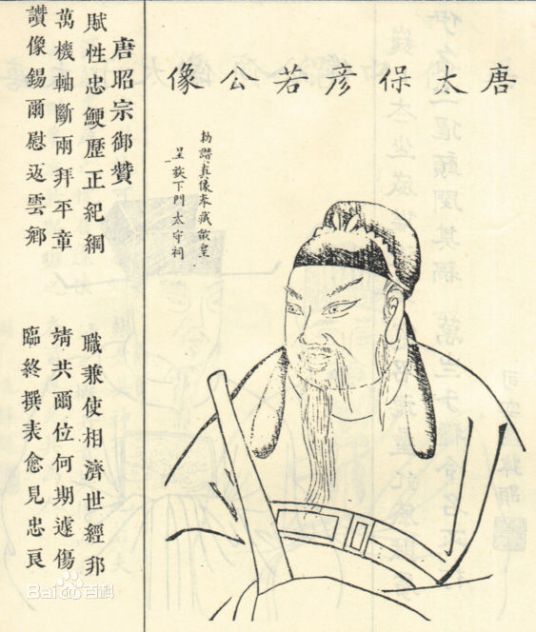 唐太保彦若公像
勅讚真像本藏
呈
下門太守祠
唐昭宗御赞
赋性忠鯁歷正紀綱
職兼使相濟世經邦
萬機軸斷兩拜平章
靖共爾位何期遽傷
讚像錫爾慰返雲鄉
臨終撰表愈見忠良
Bai百科